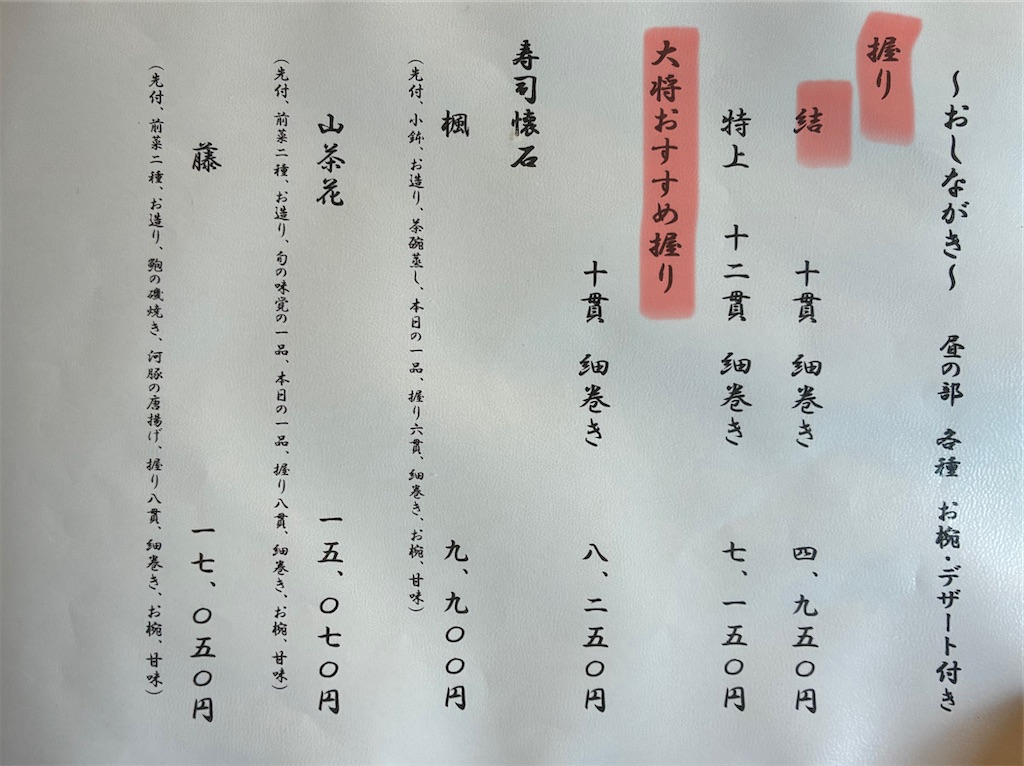 ～おしながき～　昼の部　各種　お椀・デザート付き
握り
結　十貫　細巻き　四、九五〇円
特上　十二貫　細巻き　七、一五〇円
大将おすすめ握り
十貫　細巻き　八、二五〇円
寿司懐石
楓　九、九〇〇円
（先付、小鉢、お造り、茶碗蒸し、本日の一品、握り六貫、細巻き、お椀、甘味）
山茶花　一五、〇七〇円
（先付、前菜二種、お造り、旬の味覚の一品、本日の一品、握り八貫、細巻き、お椀、甘味）
藤　一七、〇五〇円
（先付、前菜二種、お造り、鮑の磯焼き、河豚の唐揚げ、握り八貫、細巻き、お椀、甘味）